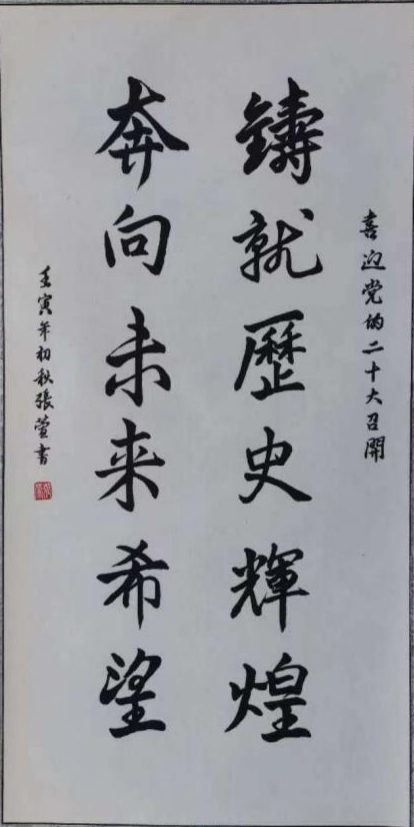 喜迎党的二十大召開
鑄就歷史輝煌
奔向未来希望
壬寅年初秋張萱書